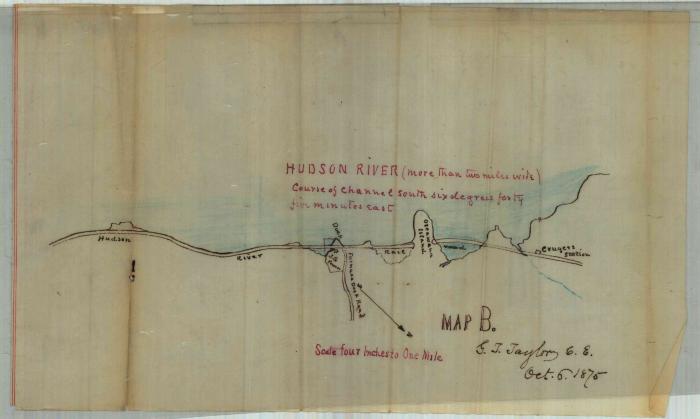 HUDSON RIVER (more than two miles wide)
Course of channel south six degrees forty
five minutes east
Hudson
River
Dock
Furnace Dock Road
Race
Oscawana Island
Crugers
Station
MAP B.
Scale four Inches to One Mile
G. T. Taylor, C. E.
Oct. 6. 1875